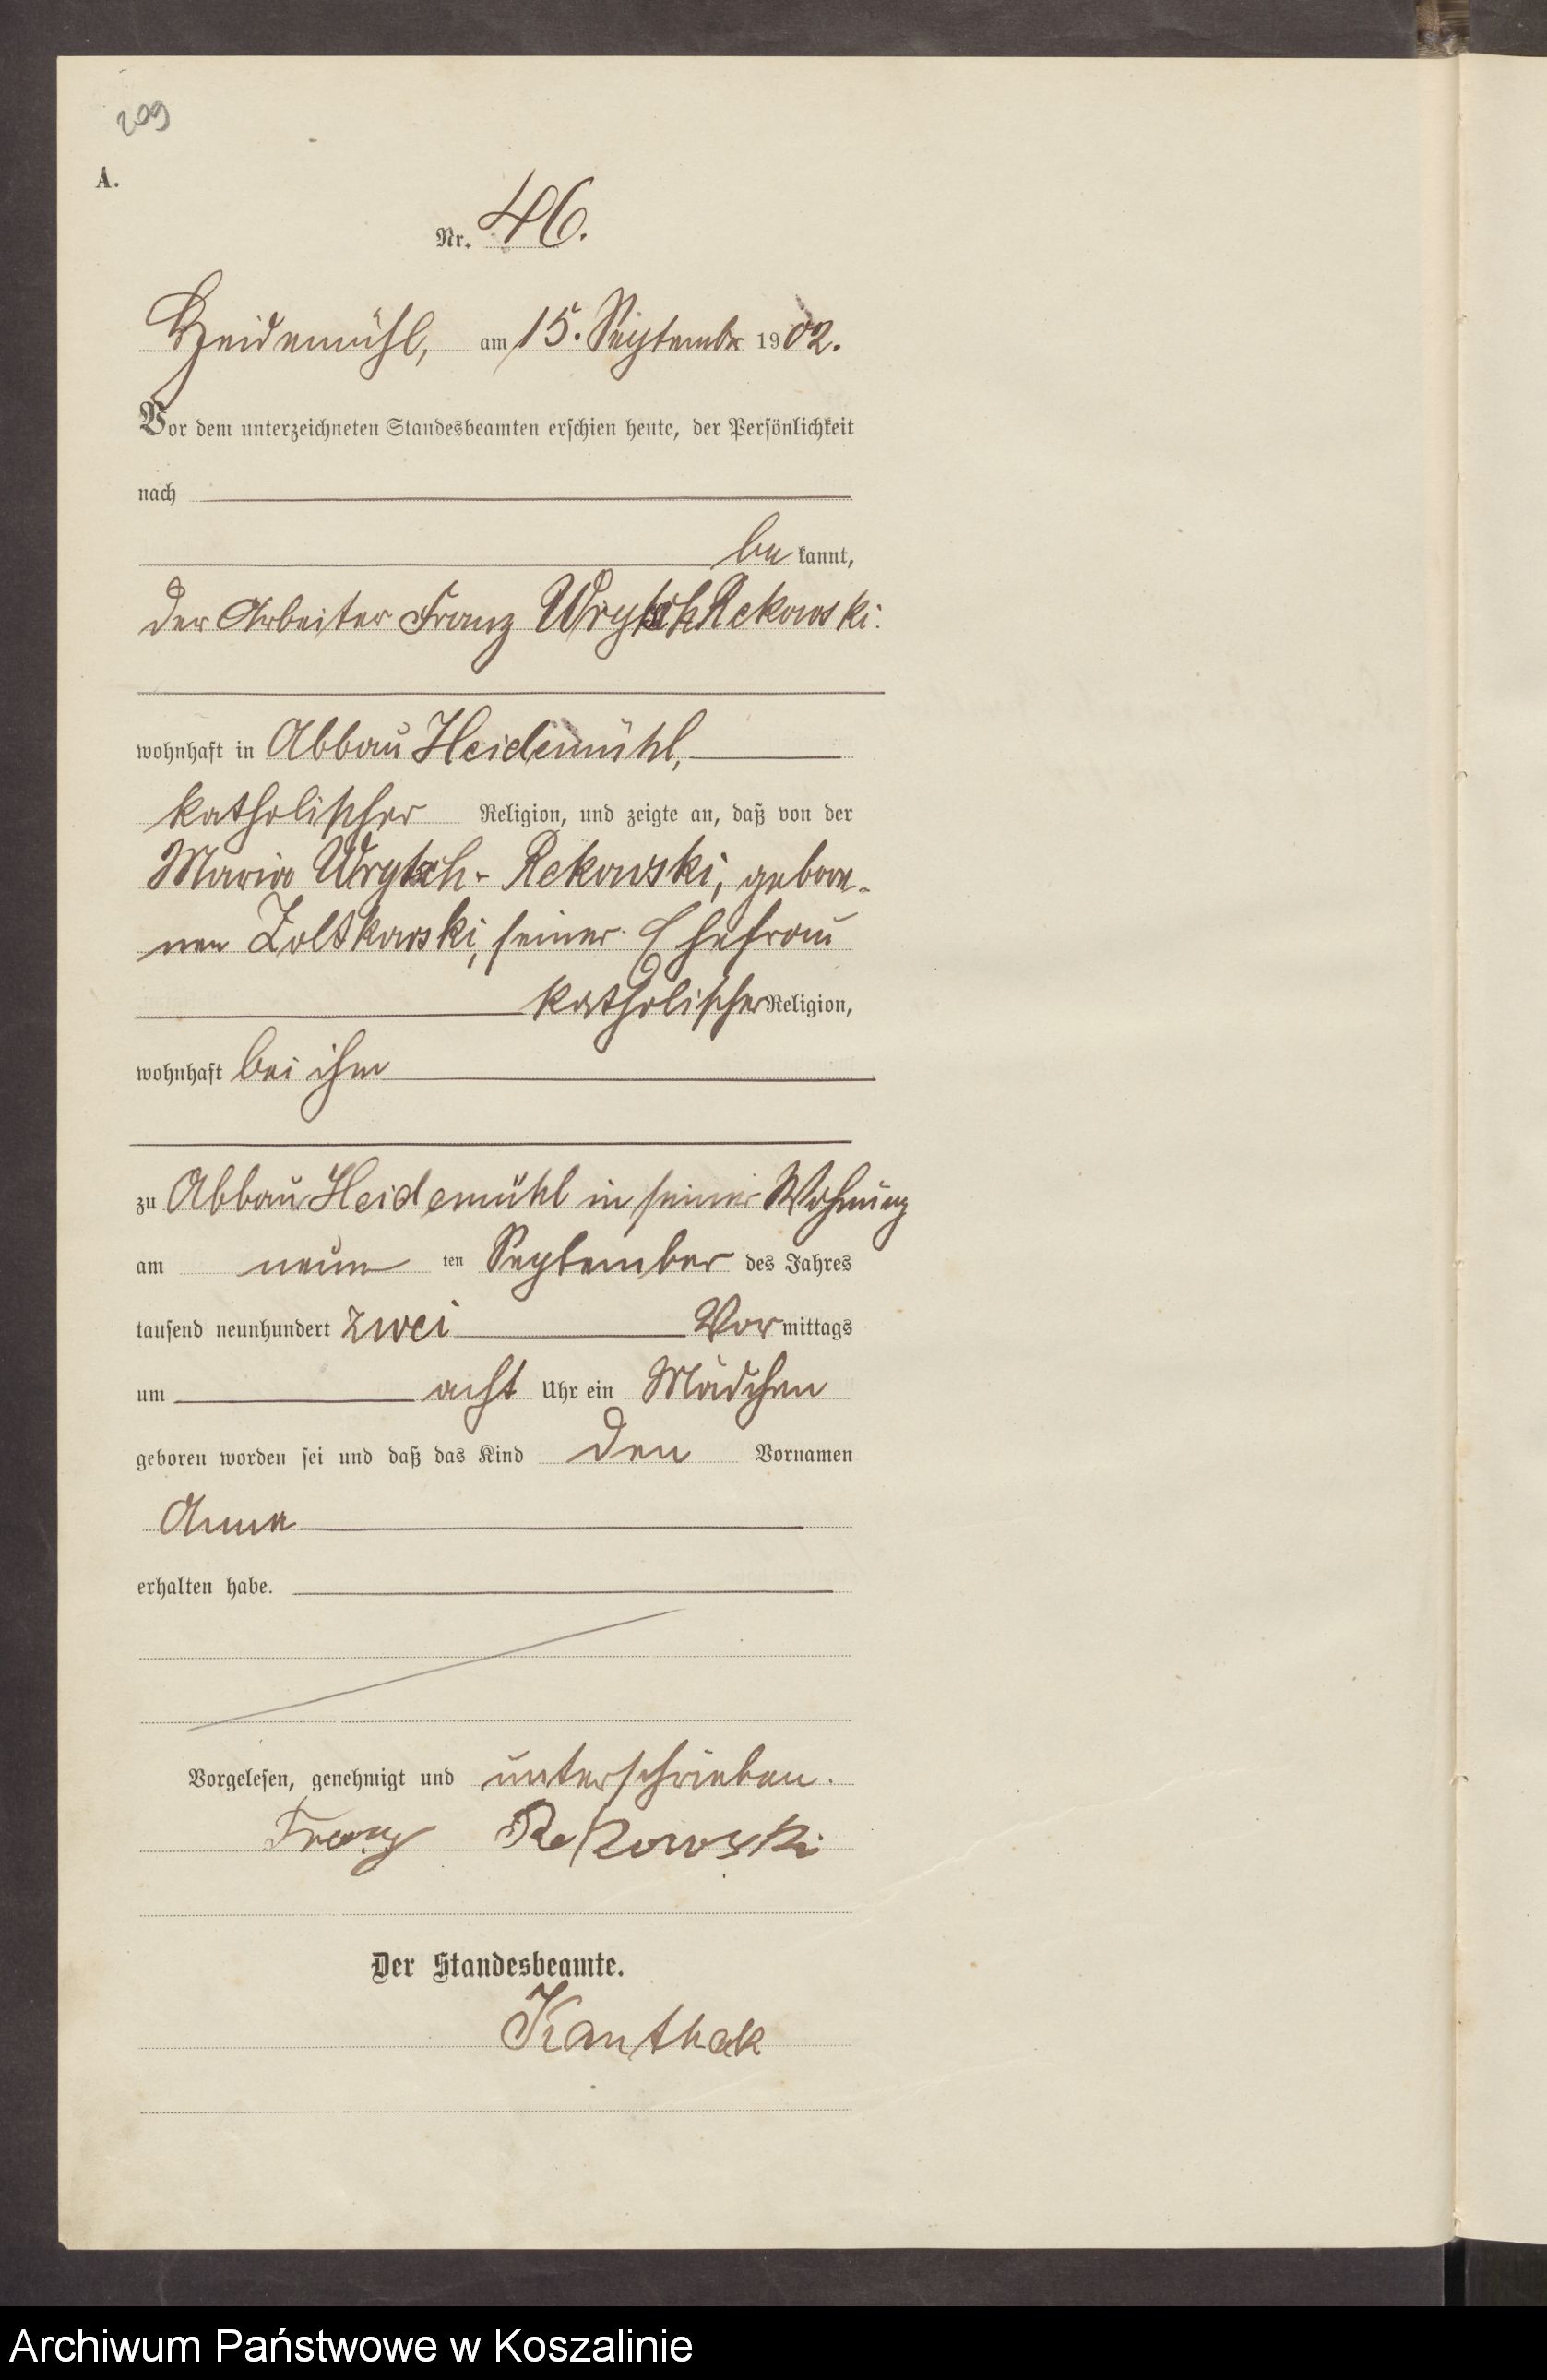 209
A.
Nr. 46.
Heidemühl, am 15. September 1902.
Vor dem unterzeichneten Standesbeamten erschien heute, der Persönlichkeit
nach
be kannt,
der Arbeiter Franz Rekowski.
wohnhaft in Abbau Heidemühl,
katholischer Religion, und zeigte an, daß von der
Maria Rekowski, gebore-
nen Zoltkowski, seiner Ehefrau
katholischer Religion,
wohnhaft bei ihm
zu Abbau Heidemühl in seiner Wohnung
am neun ten September des Jahres
tausend neunhundert zwei Vor mittags
um acht Uhr ein Mädchen
geboren worden sei und daß das Kind den Vornamen
Anna
erhalten habe.
Vorgelesen, genehmigt und unterschrieben.
Franz Rekowski
Der Standesbeamte.
Kanthak
Archiwum Państwowe w Koszalinie